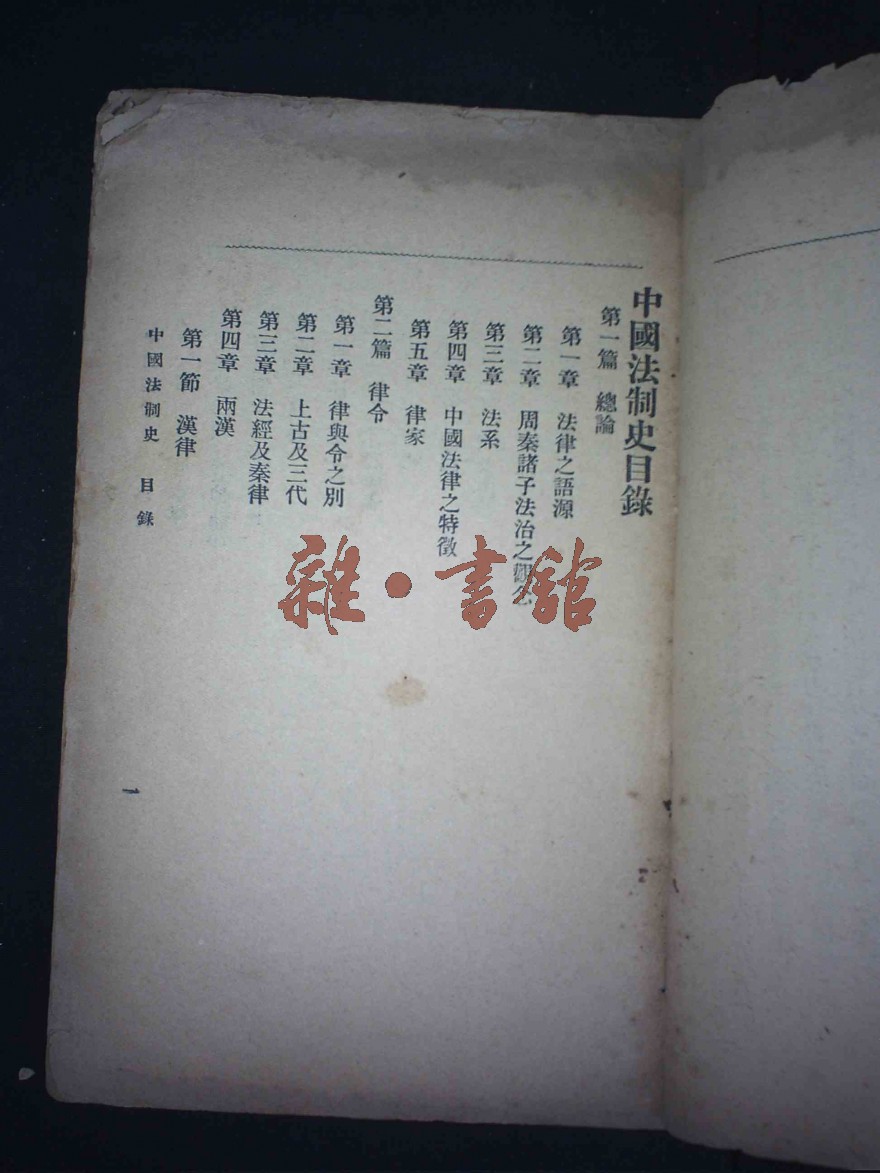 中國法制史目錄
第一篇 總論
第一章 法律之語源
第二章 周秦諸子法治之觀念
第三章 法系
第四章 中國法律之特徵
第五章 律家
第二篇 律令
第一章 律與令之別
第二章 上古及三代
第三章 法經及秦律
第四章 兩漢
第一節 漢律
中國法制史 目錄
一
雜·書館